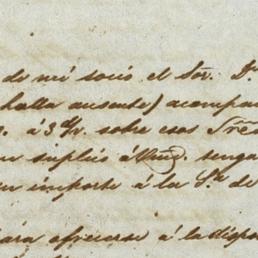 de mi socio el Sor. Dn
halla ausente) acompa
á 3 d/v. sobre esos Sres
suplico á Vmd. tenga
importe á la Sa. de
para ofrecerse á la dispo